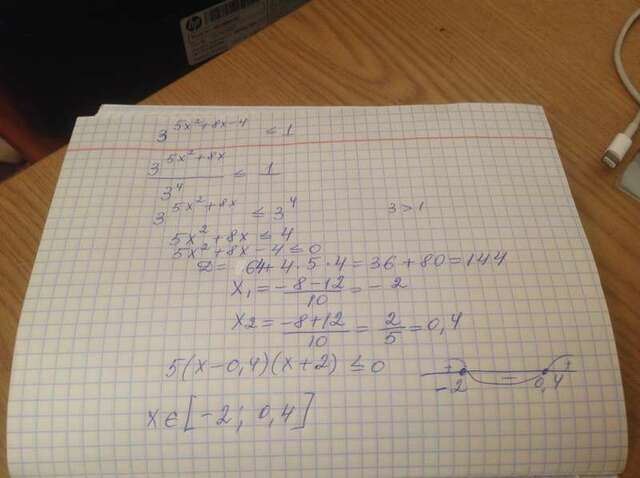 hp
3^{5x²+8x-4} ≤ 1
\frac{3^{5x²+8x}}{3^4} ≤ 1
3^{5x²+8x} ≤ 3^4 3>1
5x² + 8x ≤ 4
5x² + 8x - 4 ≤ 0
D = 64 + 4 · 5 · 4 = 36 + 80 = 144
x₁ = \frac{-8-12}{10} = -2
x₂ = \frac{-8+12}{10} = \frac{2}{5} = 0,4
5(x-0,4)(x+2) ≤ 0
+ - +
-2 0,4
x ∈ [-2; 0,4]